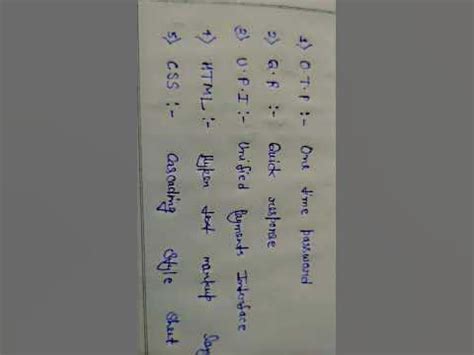 1) O.T.P :- One time password
2) Q.R :- Quick response
3) U.P.I :- Unified Payments Interface
4) HTML :- Hyper text markup
5) CSS :- Cascading Style Sheet